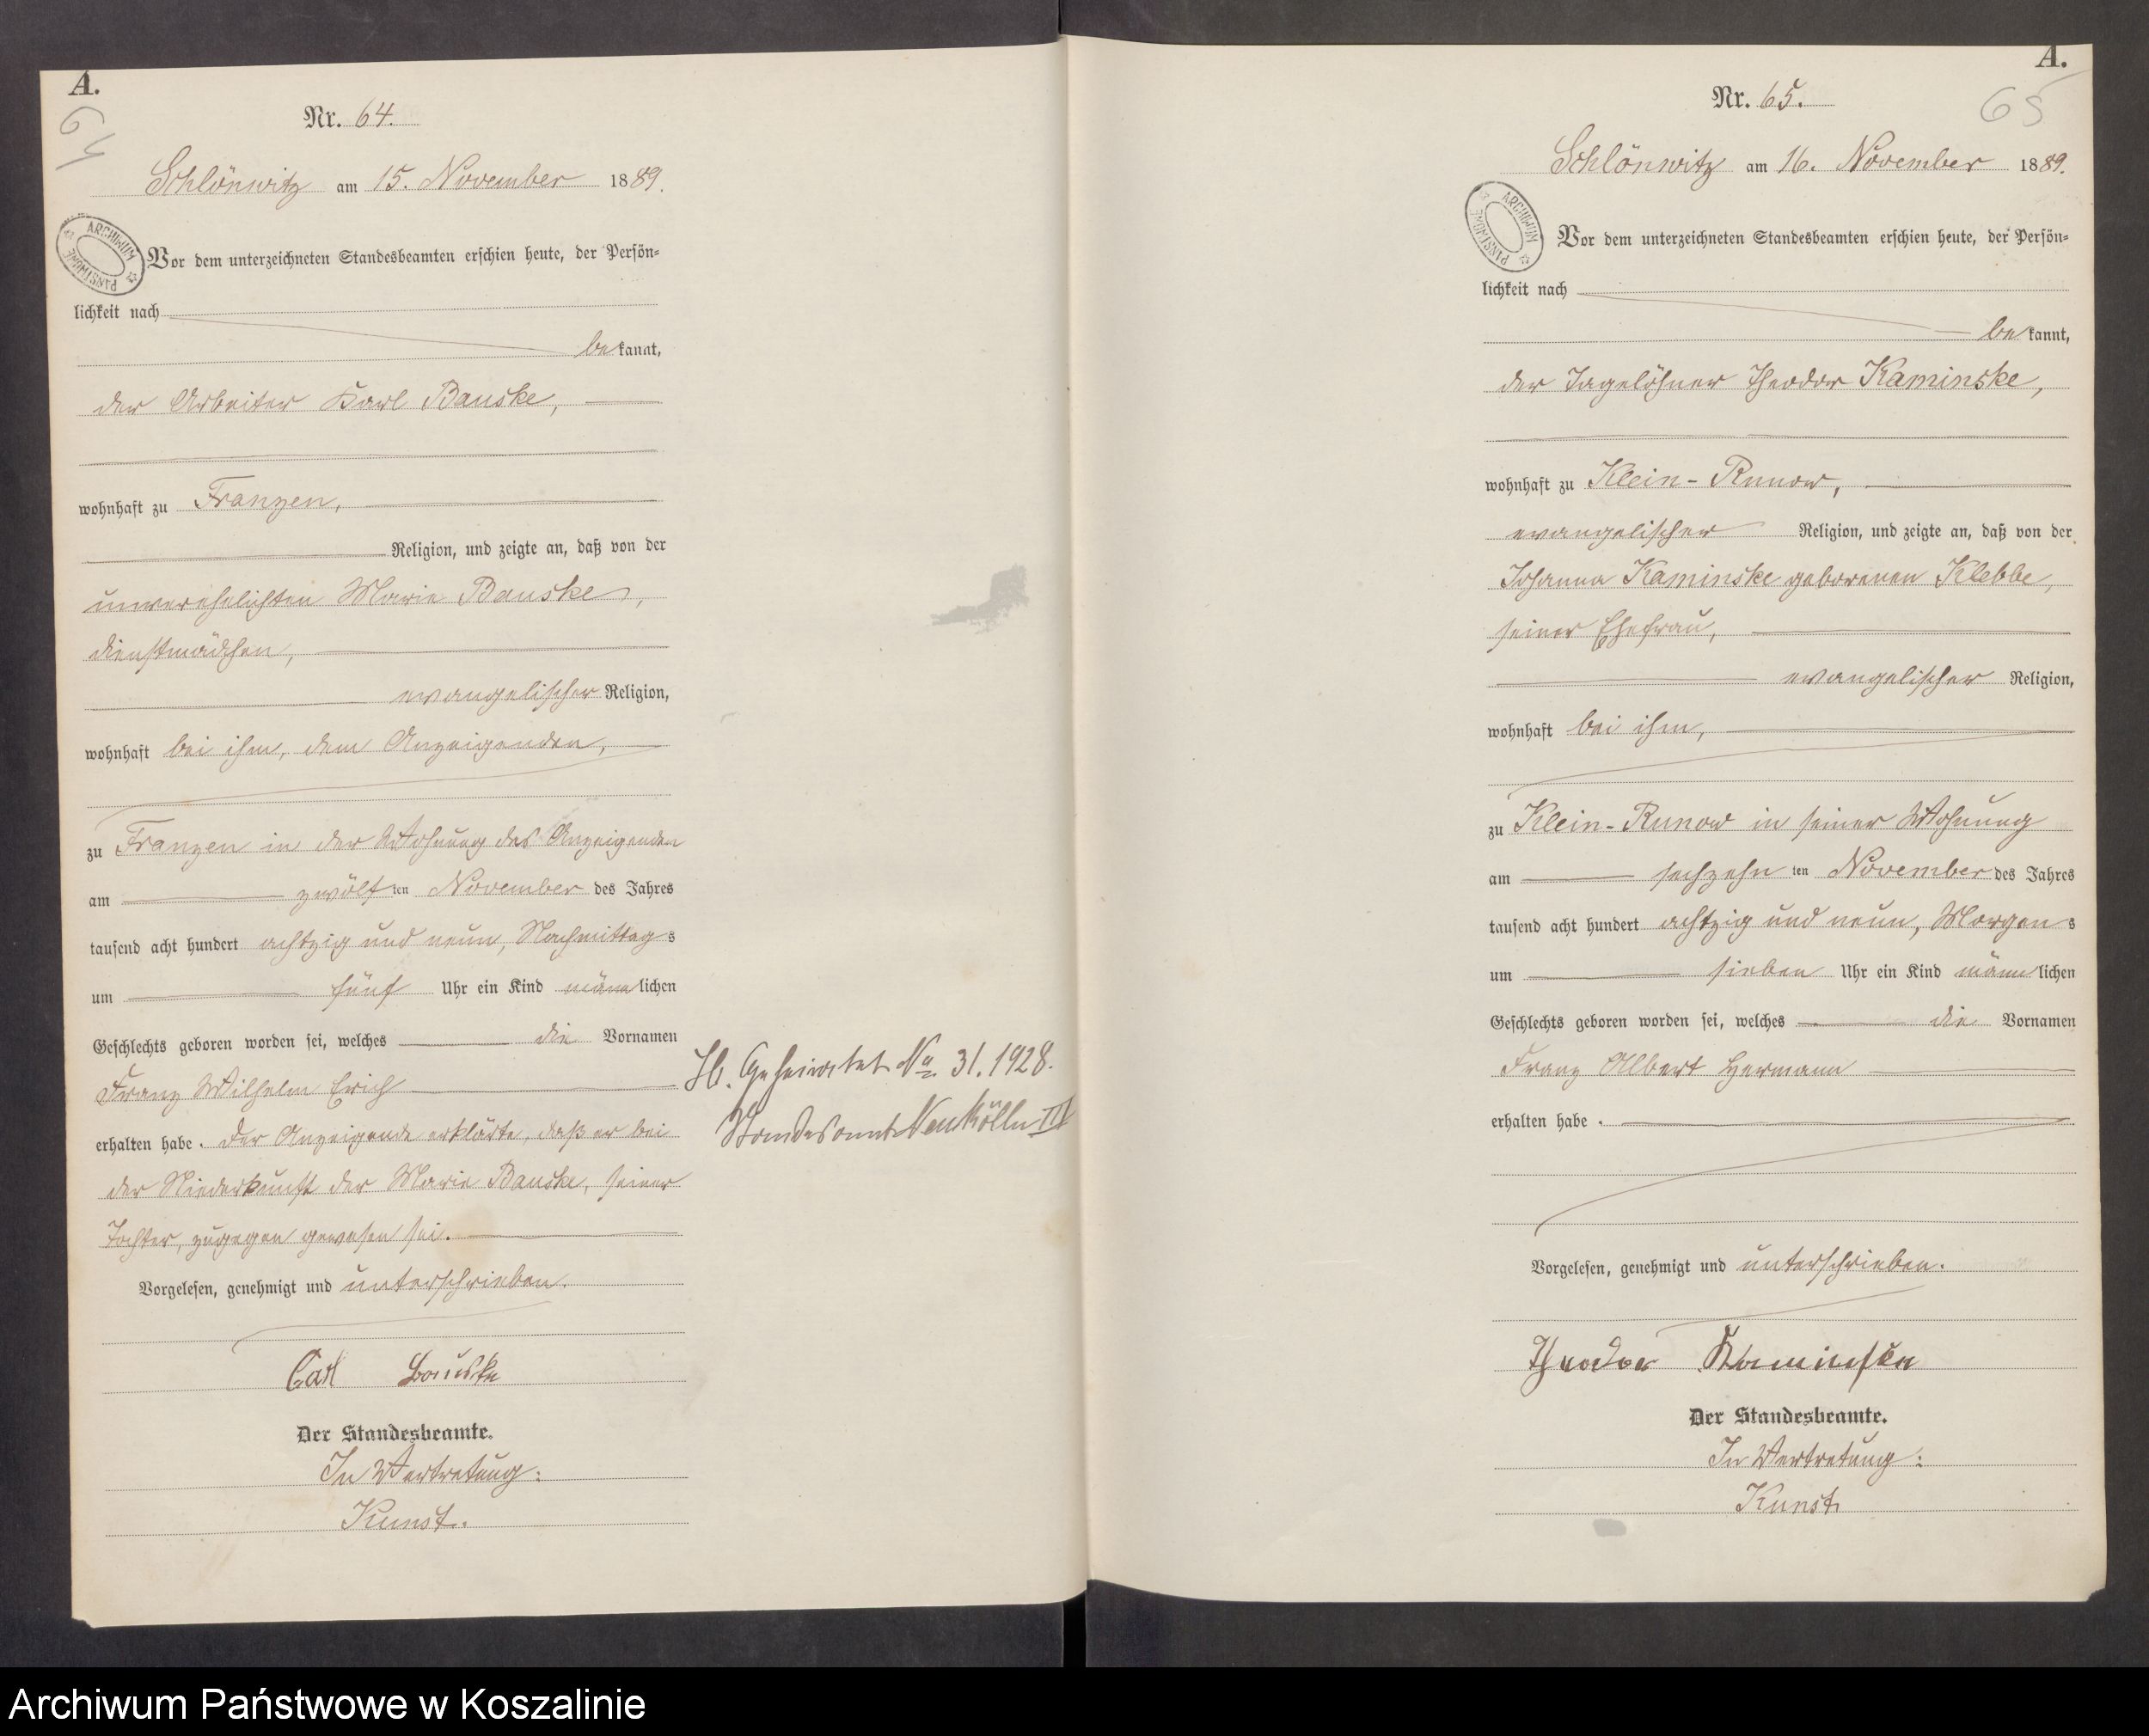 A.
64
Nr. 64.
Schlönwitz am 15. November 1889.
ARCHIWUM PAŃSTWOWE
Vor dem unterzeichneten Standesbeamten erschien heute, der Persön-
lichkeit nach
bekannt,
der Arbeiter Karl Bauske,
wohnhaft zu Franzen,
Religion, und zeigte an, daß von der
unverehelichten Marie Bauske,
Dienstmädchen,
evangelischer Religion,
wohnhaft bei ihm, dem Anzeigenden,
zu Franzen in der Wohnung des Anzeigenden
am zwölften November des Jahres
tausend acht hundert achtzig und neun, Nachmittags
um fünf Uhr ein Kind männlichen
Geschlechts geboren worden sei, welches die Vornamen
Franz Wilhelm Erich
erhalten habe. Der Anzeigende erklärte, daß er bei
der Niederkunft der Marie Bauske, seiner
Tochter, zugegen gewesen sei.
Vorgelesen, genehmigt und unterschrieben.
Carl Bauske
Der Standesbeamte.
In Vertretung:
Kunst.
Geheiratet No 31. 1928.
Standesamt Neukölln III
A.
65
Nr. 65.
Schlönwitz am 16. November 1889.
ARCHIWUM PAŃSTWOWE
Vor dem unterzeichneten Standesbeamten erschien heute, der Persön-
lichkeit nach
bekannt,
der Tagelöhner Theodor Kaminske,
wohnhaft zu Klein-Runow,
evangelischer Religion, und zeigte an, daß von der
Johanna Kaminske geborenen Klebbe,
seiner Ehefrau,
evangelischer Religion,
wohnhaft bei ihm,
zu Klein-Runow in seiner Wohnung
am sechzehnten November des Jahres
tausend acht hundert achtzig und neun, Morgens
um sieben Uhr ein Kind männlichen
Geschlechts geboren worden sei, welches die Vornamen
Franz Albert Hermann
erhalten habe.
Vorgelesen, genehmigt und unterschrieben.
Theodor Kaminsken
Der Standesbeamte.
In Vertretung:
Kunst
Archiwum Państwowe w Koszalinie